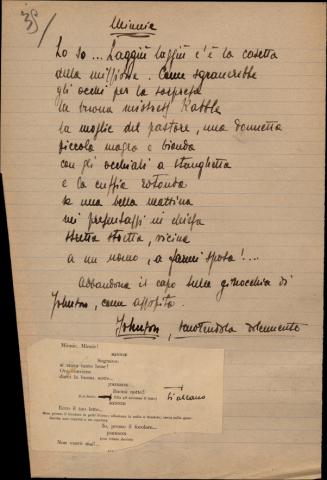 35/
Minnie
Lo so... Laggiù laggiù c'è la casetta
della missione. Come sgranerebbe
gli occhi per la sorpresa
la buona mistress Rabble
la moglie del pastore, una donnetta
piccola magra e bionda
con gli occhiali a stanghetta
e la cuffia rotonda
se una bella mattina
mi presentassi in chiesa
stretta stretta, vicina
a un uomo, a farmi sposa!...
Abbandona il capo sulle ginocchia di
Johnson, come assopita.
Johnson, scuotendola dolcemente
Minnie, Minnie!
MINNIE
Sognavo:
si stava tanto bene!
Ora conviene
darci la buona notte...
JOHNSON
Buona notte!
MINNIE
Ecco il tuo letto...
Io, presso il focolare...
JOHNSON
Non vorrò mai!...